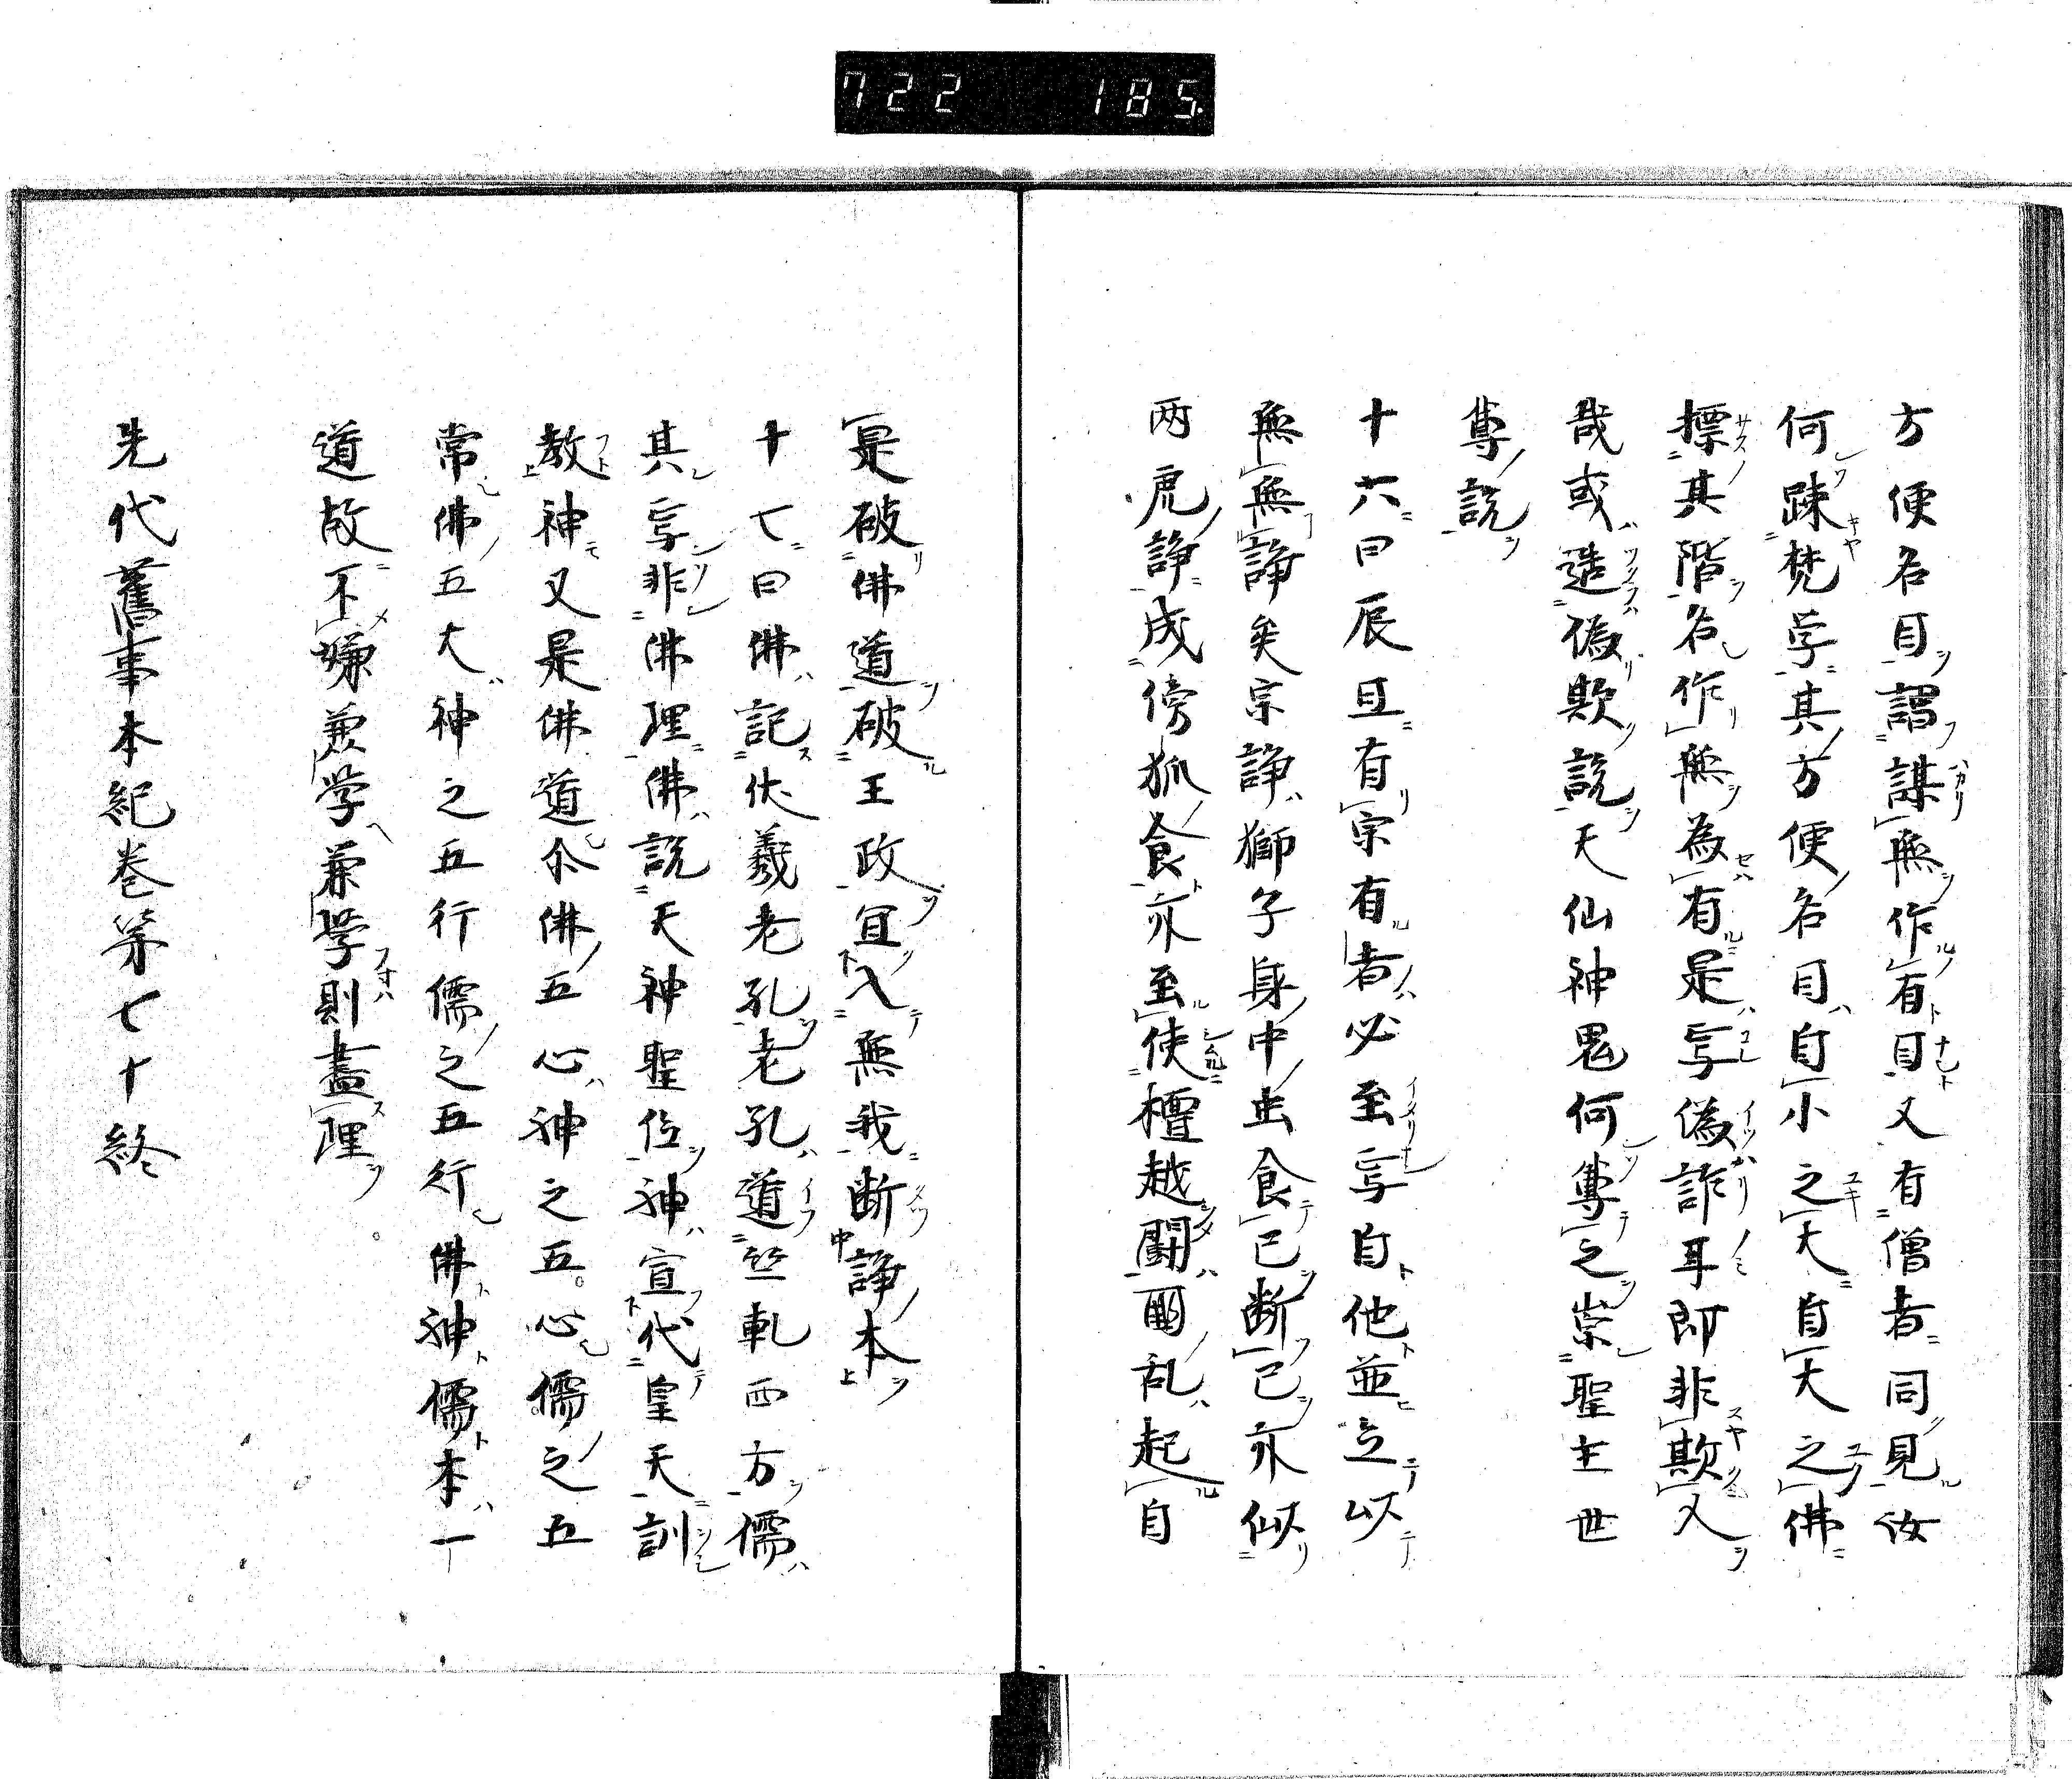 722 185
方便名目謂謀無作有目又有僧者同見汝
何踈梵学其方便名目自小之大自大之佛
摽其階名作無為有是写偽詐耳即非欺又
哉或造偽欺説天仙神鬼何専之崇聖主世
専説
十六曰辰旦有宗有者必至写自他並立以
無無諍矣宗諍獅子身中虫食已断已亦似
両虎諍成傍狐食亦至使檀越闘乱起自
是破佛道破王政宜入無我断諍本
十七曰佛記伏羲老孔老孔道竺軋西方儒
其写非佛理佛説天神聖位神宣代皇天訓
教神又是佛道尒佛五心神之五心儒之五
常佛五大神之五行儒之五行佛神儒本一
道故不嫌兼学兼学則盡理
先代舊事本紀巻第七十終